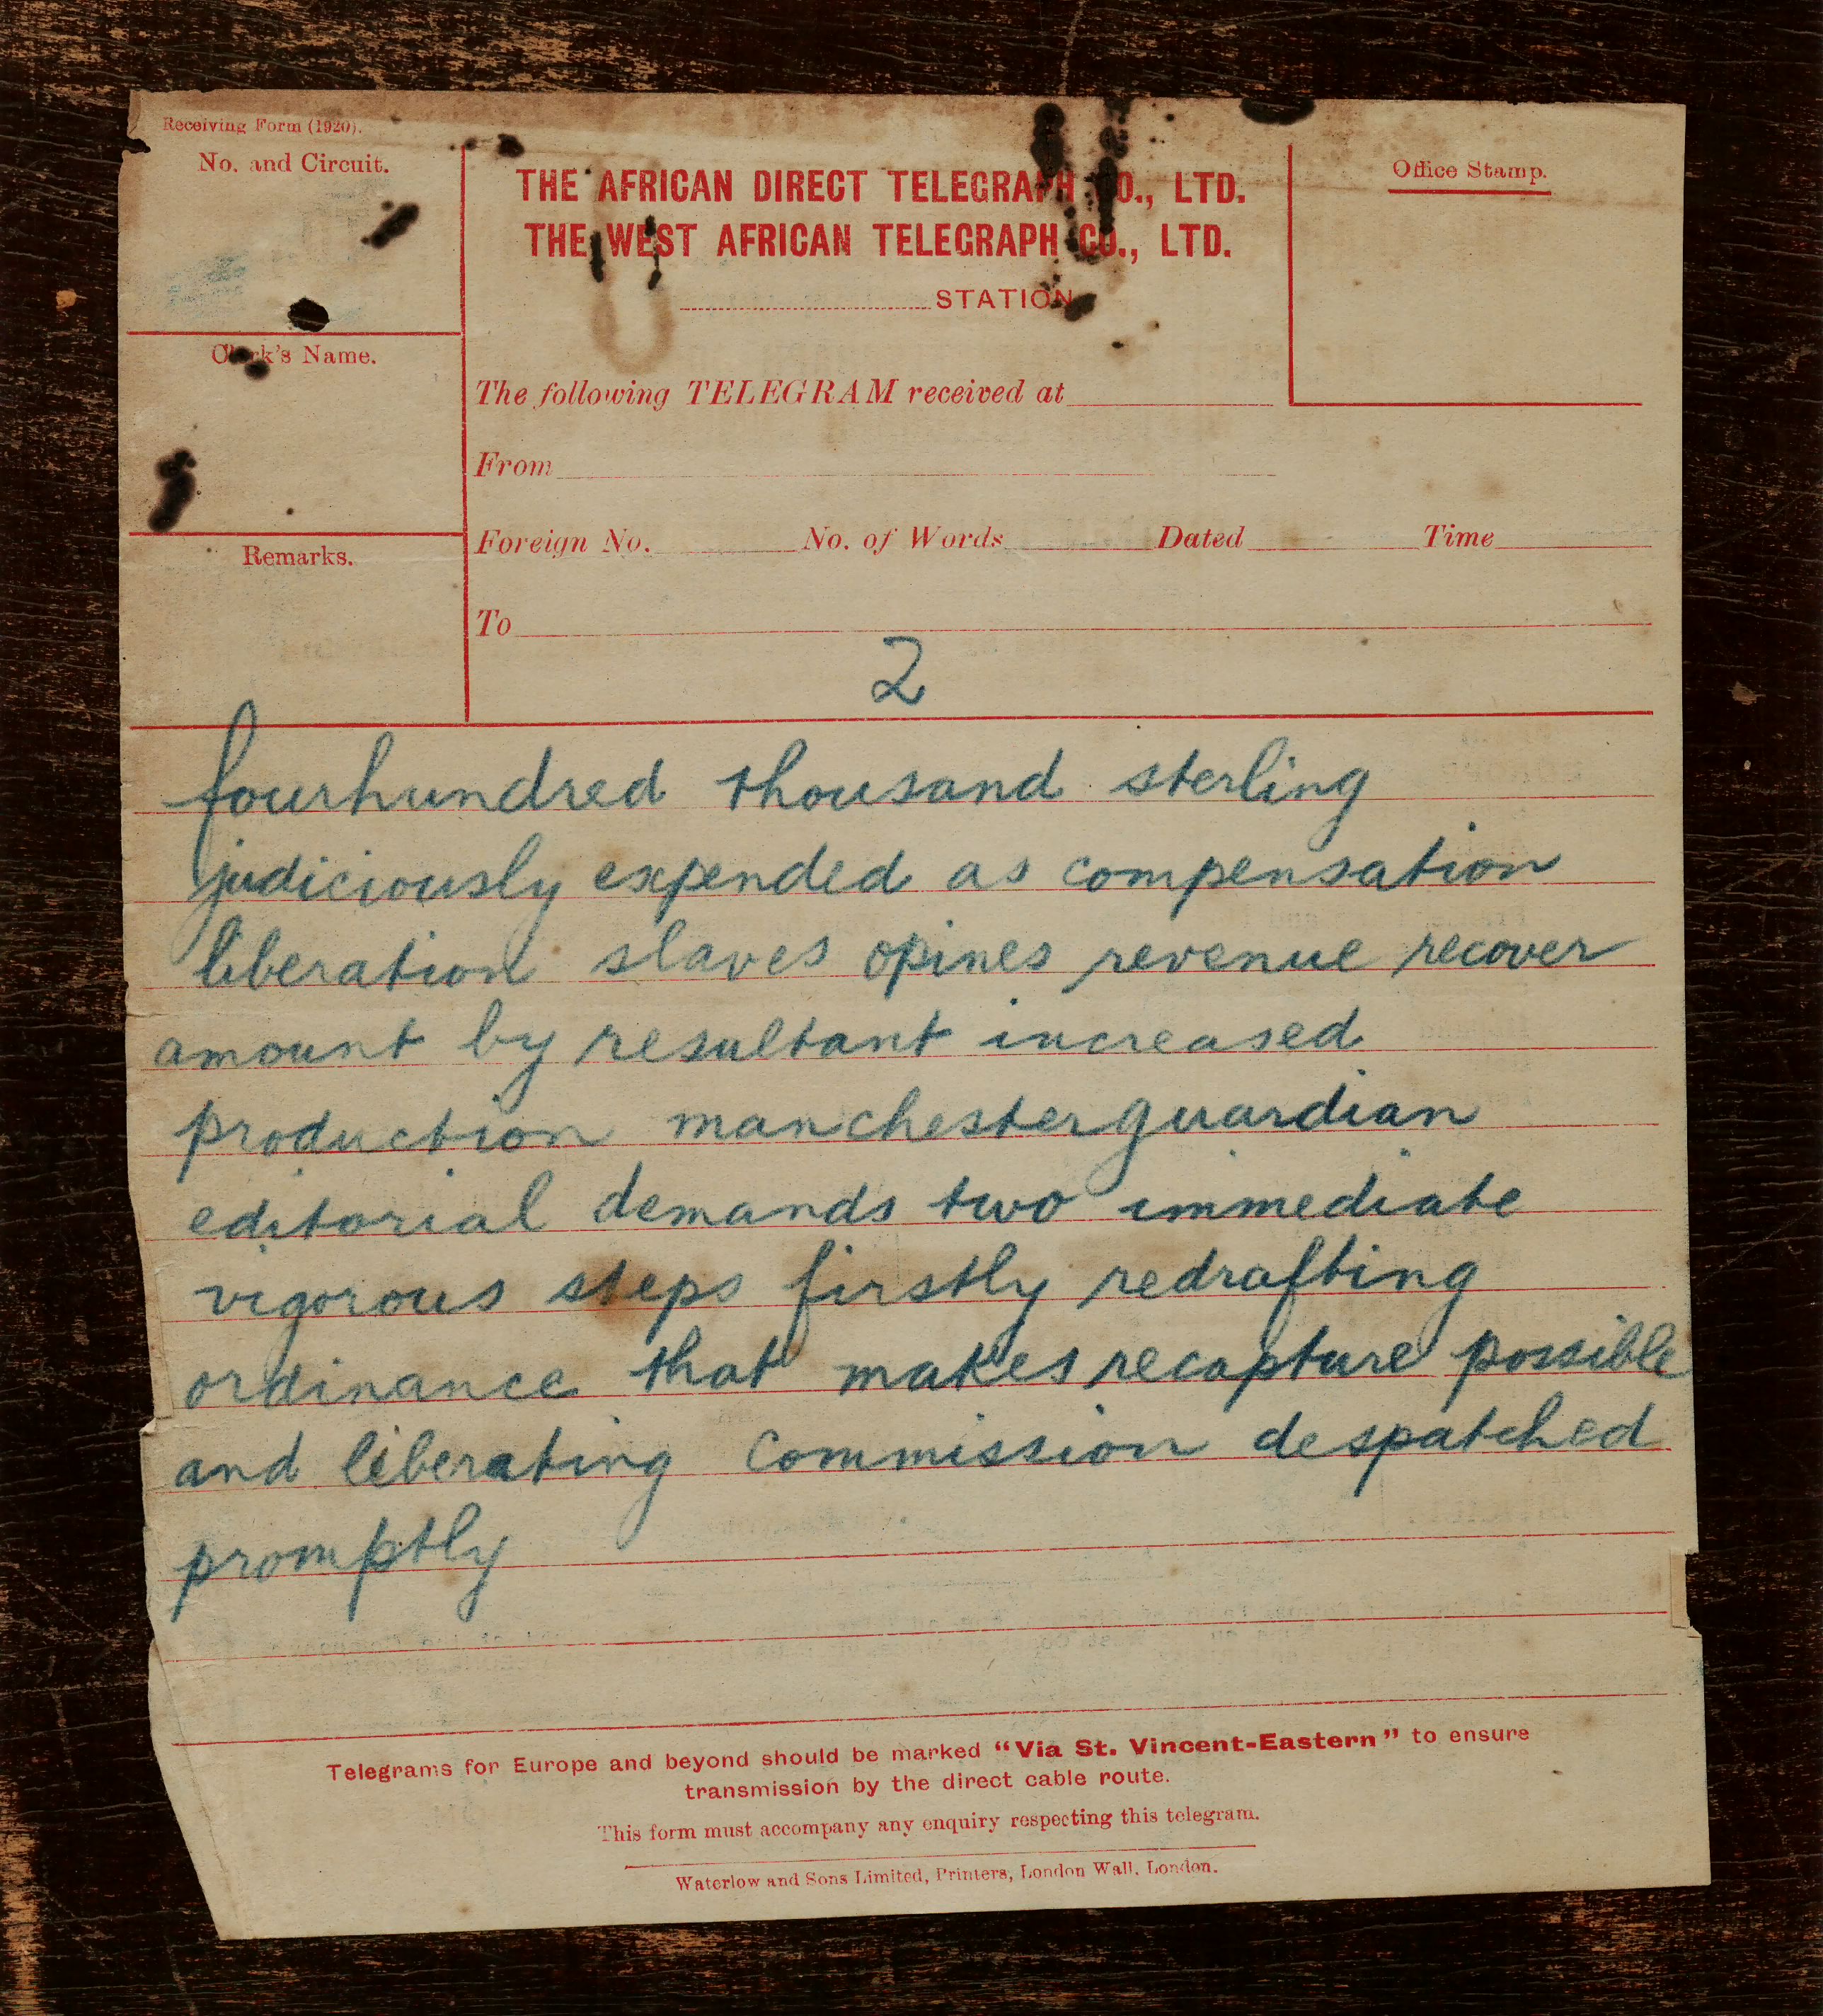 Receiving Form (1920).
No. and Circuit.
THE AFRICAN DIRECT TELEGRAPH CO., LTD.
THE WEST AFRICAN TELEGRAPH CO., LTD.
STATION
Office Stamp.
Clerk's Name.
The following TELEGRAM received at
From
Foreign No. No. of Words Dated Time
Remarks.
To
2
fourhundred thousand sterling
judiciously expended as compensation
liberation slaves opines revenue recover
amount by resultant increased
production manchesterguardian
editorial demands two immediate
vigorous steps firstly redrafting
ordinance that makes recapture possible
and liberating Commission despatched
promptly
Telegrams for Europe and beyond should be marked "Via St. Vincent-Eastern" to ensure
transmission by the direct cable route.
This form must accompany any enquiry respecting this telegram.
Waterlow and Sons Limited, Printers, London Wall, London.